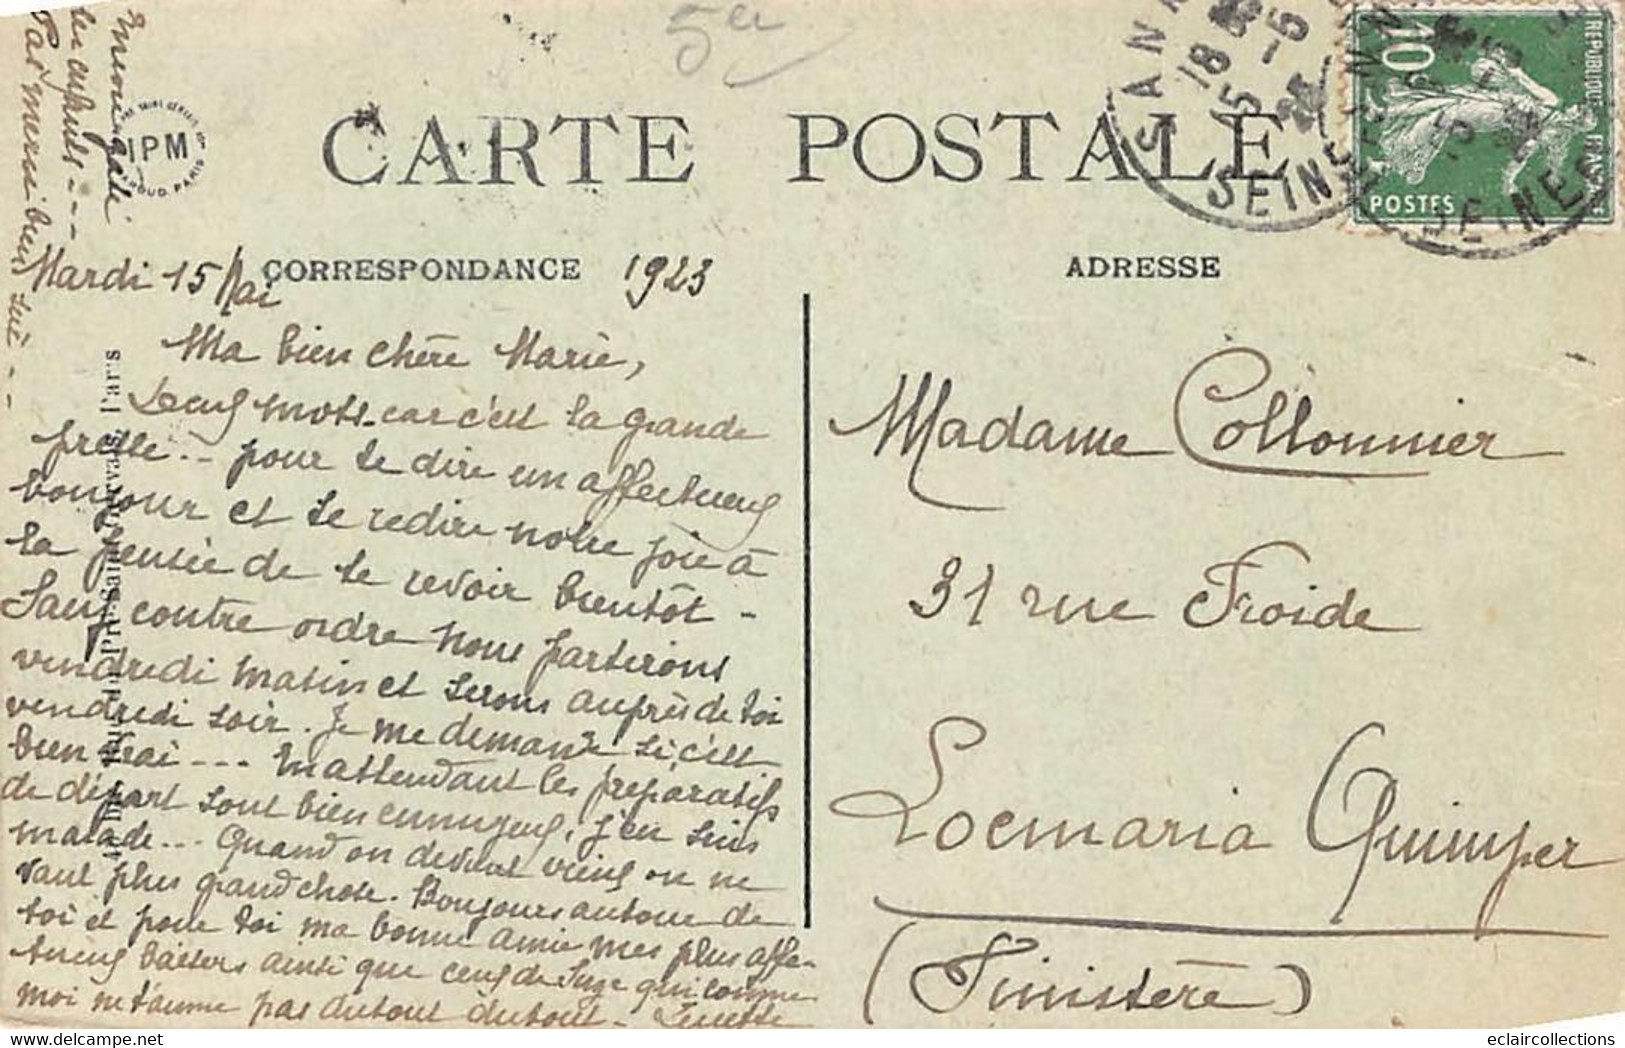 5
CARTE POSTALE
SEINE
SEINE
10
REPUBLIQUE FRANÇAISE
POSTES
IPM
PARIS
CORRESPONDANCE
ADRESSE
Mardi 15 Mai 1923
Ma bien chère Marie,
Deux mots car c'est la grande
presse -- pour te dire un affectueux
bonjour et te redire notre joie à
la pensée de te revoir bientôt -
Sauf contre ordre nous partirons
vendredi matin et serons auprès de toi
vendredi soir. Je me demande si c'est
bien vrai --- En attendant les préparatifs
de départ sont bien ennuyeux, j'en suis
malade --- Quand on devient vieux on ne
vaut plus grand chose. Bonjours autour de
toi et pour toi ma bonne amie mes plus affe-
tueux baisers ainsi que ceux de Suze qui comme
moi ne t'aime pas du tout du tout -
les enfants ---
Pas merci bien sûr --
Madame Collonnier
31 rue Froide
Locmaria Quimper
(Finistère)
eclaircollections